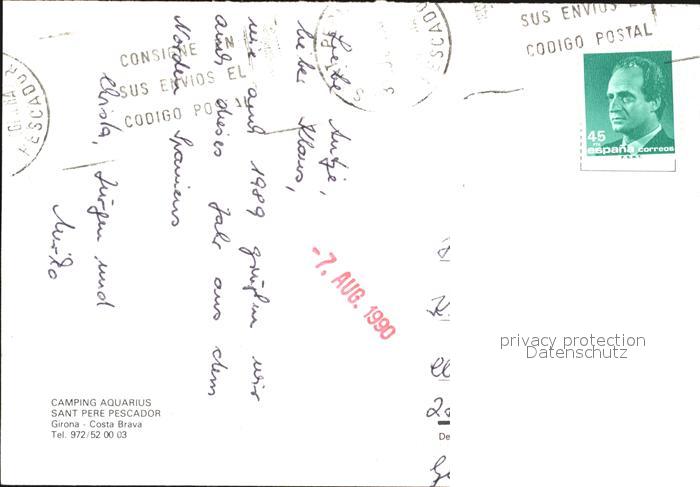 Liebe Antje,
lieber Klaus,
wie auch 1989 grüßen wir
auch dieses Jahr aus dem
Norden Spaniens
Christa, Jürgen und
Mirko
CONSIGNE EN
SUS ENVIOS EL
CODIGO POSTAL
ESCADOR
ESCADOR
SUS ENVIOS EL
CODIGO POSTAL
45
PTA
españa correos
F.N.M.T.
-7. AUG. 1990
privacy protection
Datenschutz
CAMPING AQUARIUS
SANT PERE PESCADOR
Girona - Costa Brava
Tel. 972/52 00 03
De